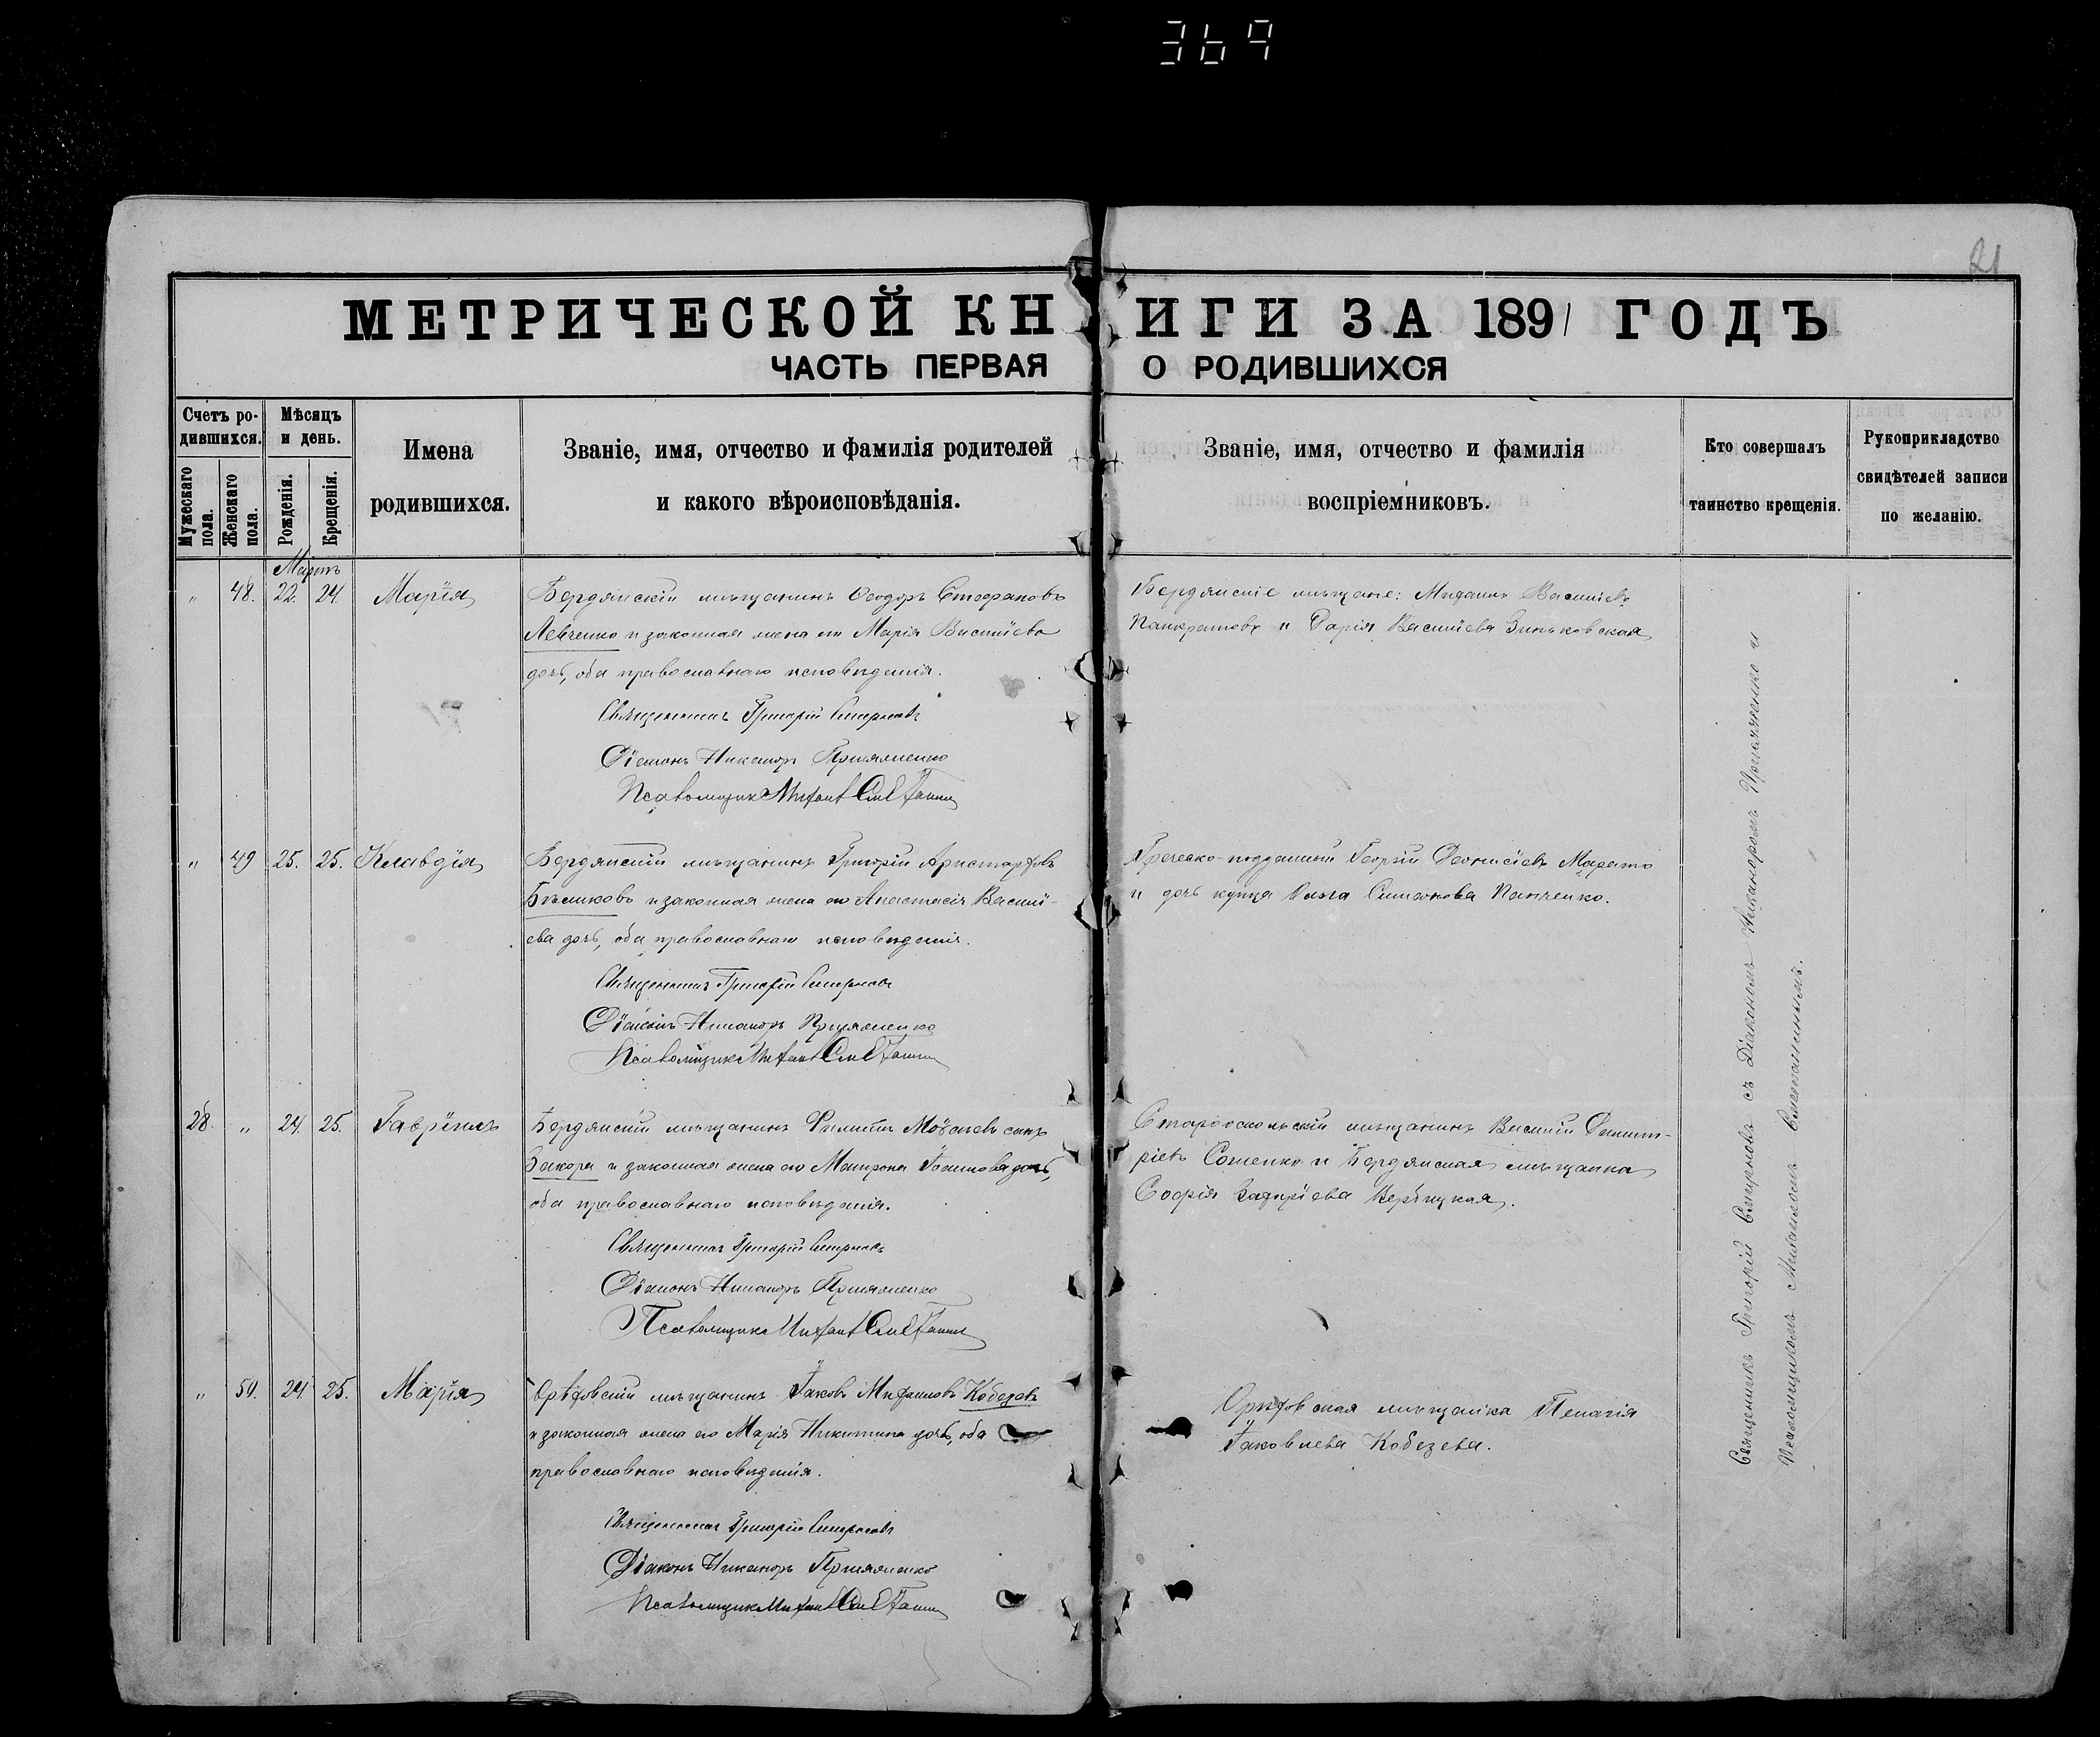 369
21
МЕТРИЧЕСКОЙ КНИГИ ЗА 1891 ГОДЪ
ЧАСТЬ ПЕРВАЯ О РОДИВШИХСЯ
Счетъ ро-
дившихся.
Мужескаго
пола.
Женскаго
пола.
Мѣсяцъ
и день.
Рожденія.
Крещенія.
Имена
родившихся.
Званіе, имя, отчество и фамилія родителей
и какого вѣроисповѣданія.
Званіе, имя, отчество и фамилія
воспріемниковъ.
Кто совершалъ
таинство крещенія.
Рукоприкладство
свидѣтелей записи
по желанію.
Мартъ
" 48. 22. 24. Марія
Бердянскій мѣщанинъ Ѳеодоръ Стефановъ
Левченко и законная жена его Марія Василіева
дочь, оба православнаго исповѣданія.
Священникъ Григорій Смирновъ
Діаконъ Никаноръ Прияженко
Псаломщикъ Михаилъ
Бердянскіе мѣщане: Михаилъ Василіевъ
Панкратовъ и Дарія Василіева Зиньковская
" 49 25. 25. Клавдія
Бердянскій мѣщанинъ Григорій Аристарховъ
Бѣликовъ и законная жена его Анастасія Василі-
ева дочь, оба православнаго исповѣданія.
Священникъ Григорій Смирновъ
Діаконъ Никаноръ Прияженко
Псаломщикъ Михаилъ
Греческо-подданный Георгій Діонисіевъ
и дочь купца Ольга Симеонова Панченко.
28. " 24. 25. Гавріилъ
Бердянскій мѣщанинъ Филиппъ Моѵсеевъ сынъ
и законная жена его Матрона Іоаннова дочь,
оба православнаго исповѣданія.
Священникъ Григорій Смирновъ
Діаконъ Никаноръ Прияженко
Псаломщикъ Михаилъ
Старооскольскій мѣщанинъ Василій Димит-
ріевъ и Бердянская мѣщанка
Софія Захаріева
" 50. 24. 25. Марія
Орѣховскій мѣщанинъ Іаковъ Михаиловъ Кобезевъ
и законная жена его Марія Никитина дочь, оба
православнаго исповѣданія.
Священникъ Григорій Смирновъ
Діаконъ Никаноръ Прияженко
Псаломщикъ Михаилъ
Орѣховская мѣщанка Пелагія
Іаковлева Кобезева.
Священникъ Григорій Смирновъ съ Діакономъ Никаноромъ Прияженко и
Псаломщикомъ Михаиломъ